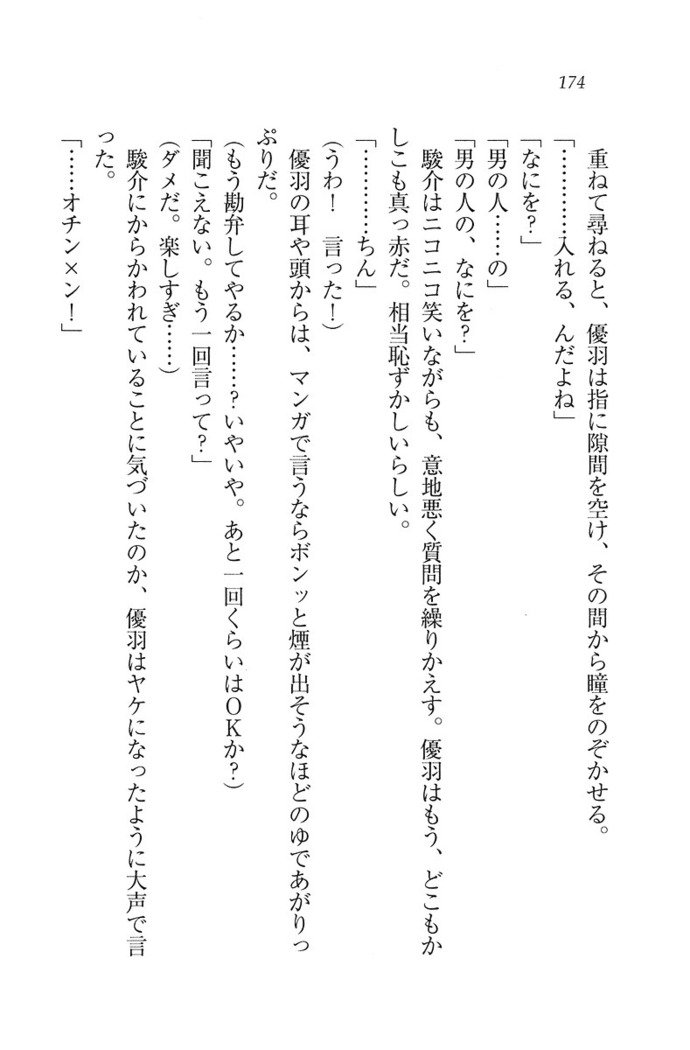 174
重ねて尋ねると、優羽は指に隙間を空け、その間から瞳をのぞかせる。
「…………入れる、んだよね」
「なにを？」
「男の人……の」
「男の人の、なにを？」
駿介はニコニコ笑いながらも、意地悪く質問を繰りかえす。優羽はもう、どこもか
しこも真っ赤だ。相当恥ずかしいらしい。
「…………ちん」
(うわ！　言った！)
優羽の耳や頭からは、マンガで言うならボンッと煙が出そうなほどのゆであがりっ
ぷりだ。
(もう勘弁してやるか……？いやいや。あと一回くらいはＯＫか？)
「聞こえない。もう一回言って？」
(ダメだ。楽しすぎ……)
駿介にからかわれていることに気づいたのか、優羽はヤケになったように大声で言
った。
「……オチン×ン！」